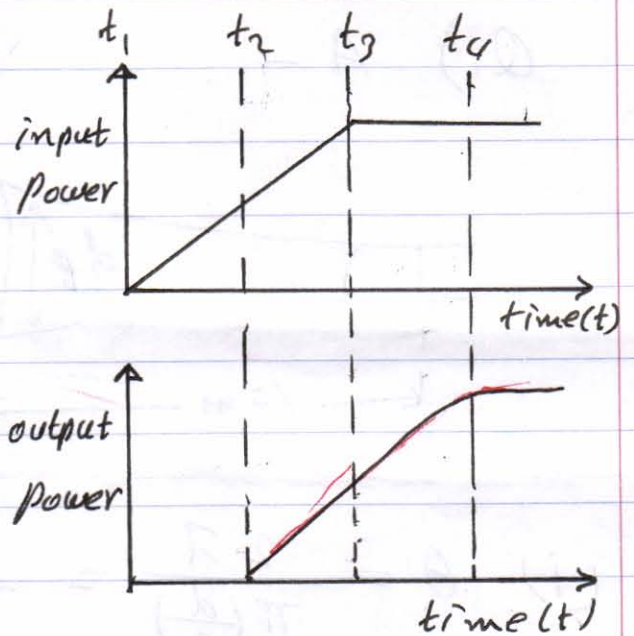 t1 t2 t3 t4
input
power
time(t)
output
power
time(t)